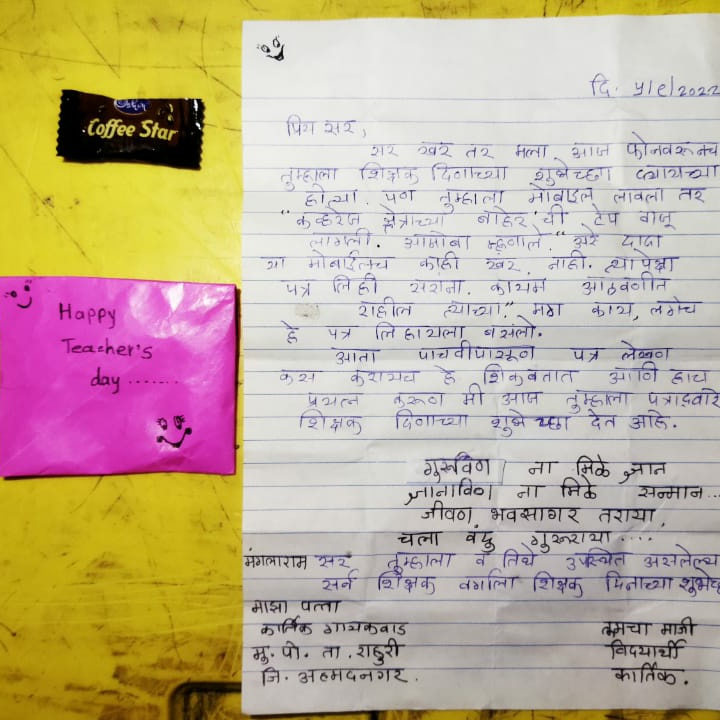 Coffee Star
Happy
Teacher's
day .......
दि. ५/९/२०२२
प्रिय सर,
सर खरं तर मला आज फोनवरूनच
तुम्हाला शिक्षक दिनाच्या शुभेच्छा द्यायच्या
होत्या. पण तुम्हाला मोबाईल लावला तर
"कव्हरेज क्षेत्राच्या बाहेर" ची टेप वाजू
लागली. आजोबा म्हणाले. "अरे दादा
या मोबाईलच काही खरं नाही. त्यापेक्षा
पत्र लिही सरांना. कायम आठवणीत
राहील त्यांच्या." मग काय, लगेच
हे पत्र लिहायला बसलो.
आता पाचवीपासूण पत्र लेखण
कसं करायच हे शिकवतात आणि हाच
प्रयत्न करूण मी आज तुम्हाला पत्राद्वारे
शिक्षक दिणाच्या शुभेच्छा देत आहे.
गुरुविण ना मिळे ज्ञान
ज्ञानाविण ना मिळे सन्मान...
जीवण भवसागर तराया
चला वंदु गुरूराया....
मंगलाराम सर तुम्हाला व तिथे उपस्थित असलेल्य
सर्व शिक्षक वर्गाला शिक्षक दिनाच्या शुभेच्
माझा पत्ता
कार्तिक गायकवाड तुमचा माजी
मु. पो. ता. राहुरी विद्यार्थी
जि. अहमदनगर. कार्तिक.